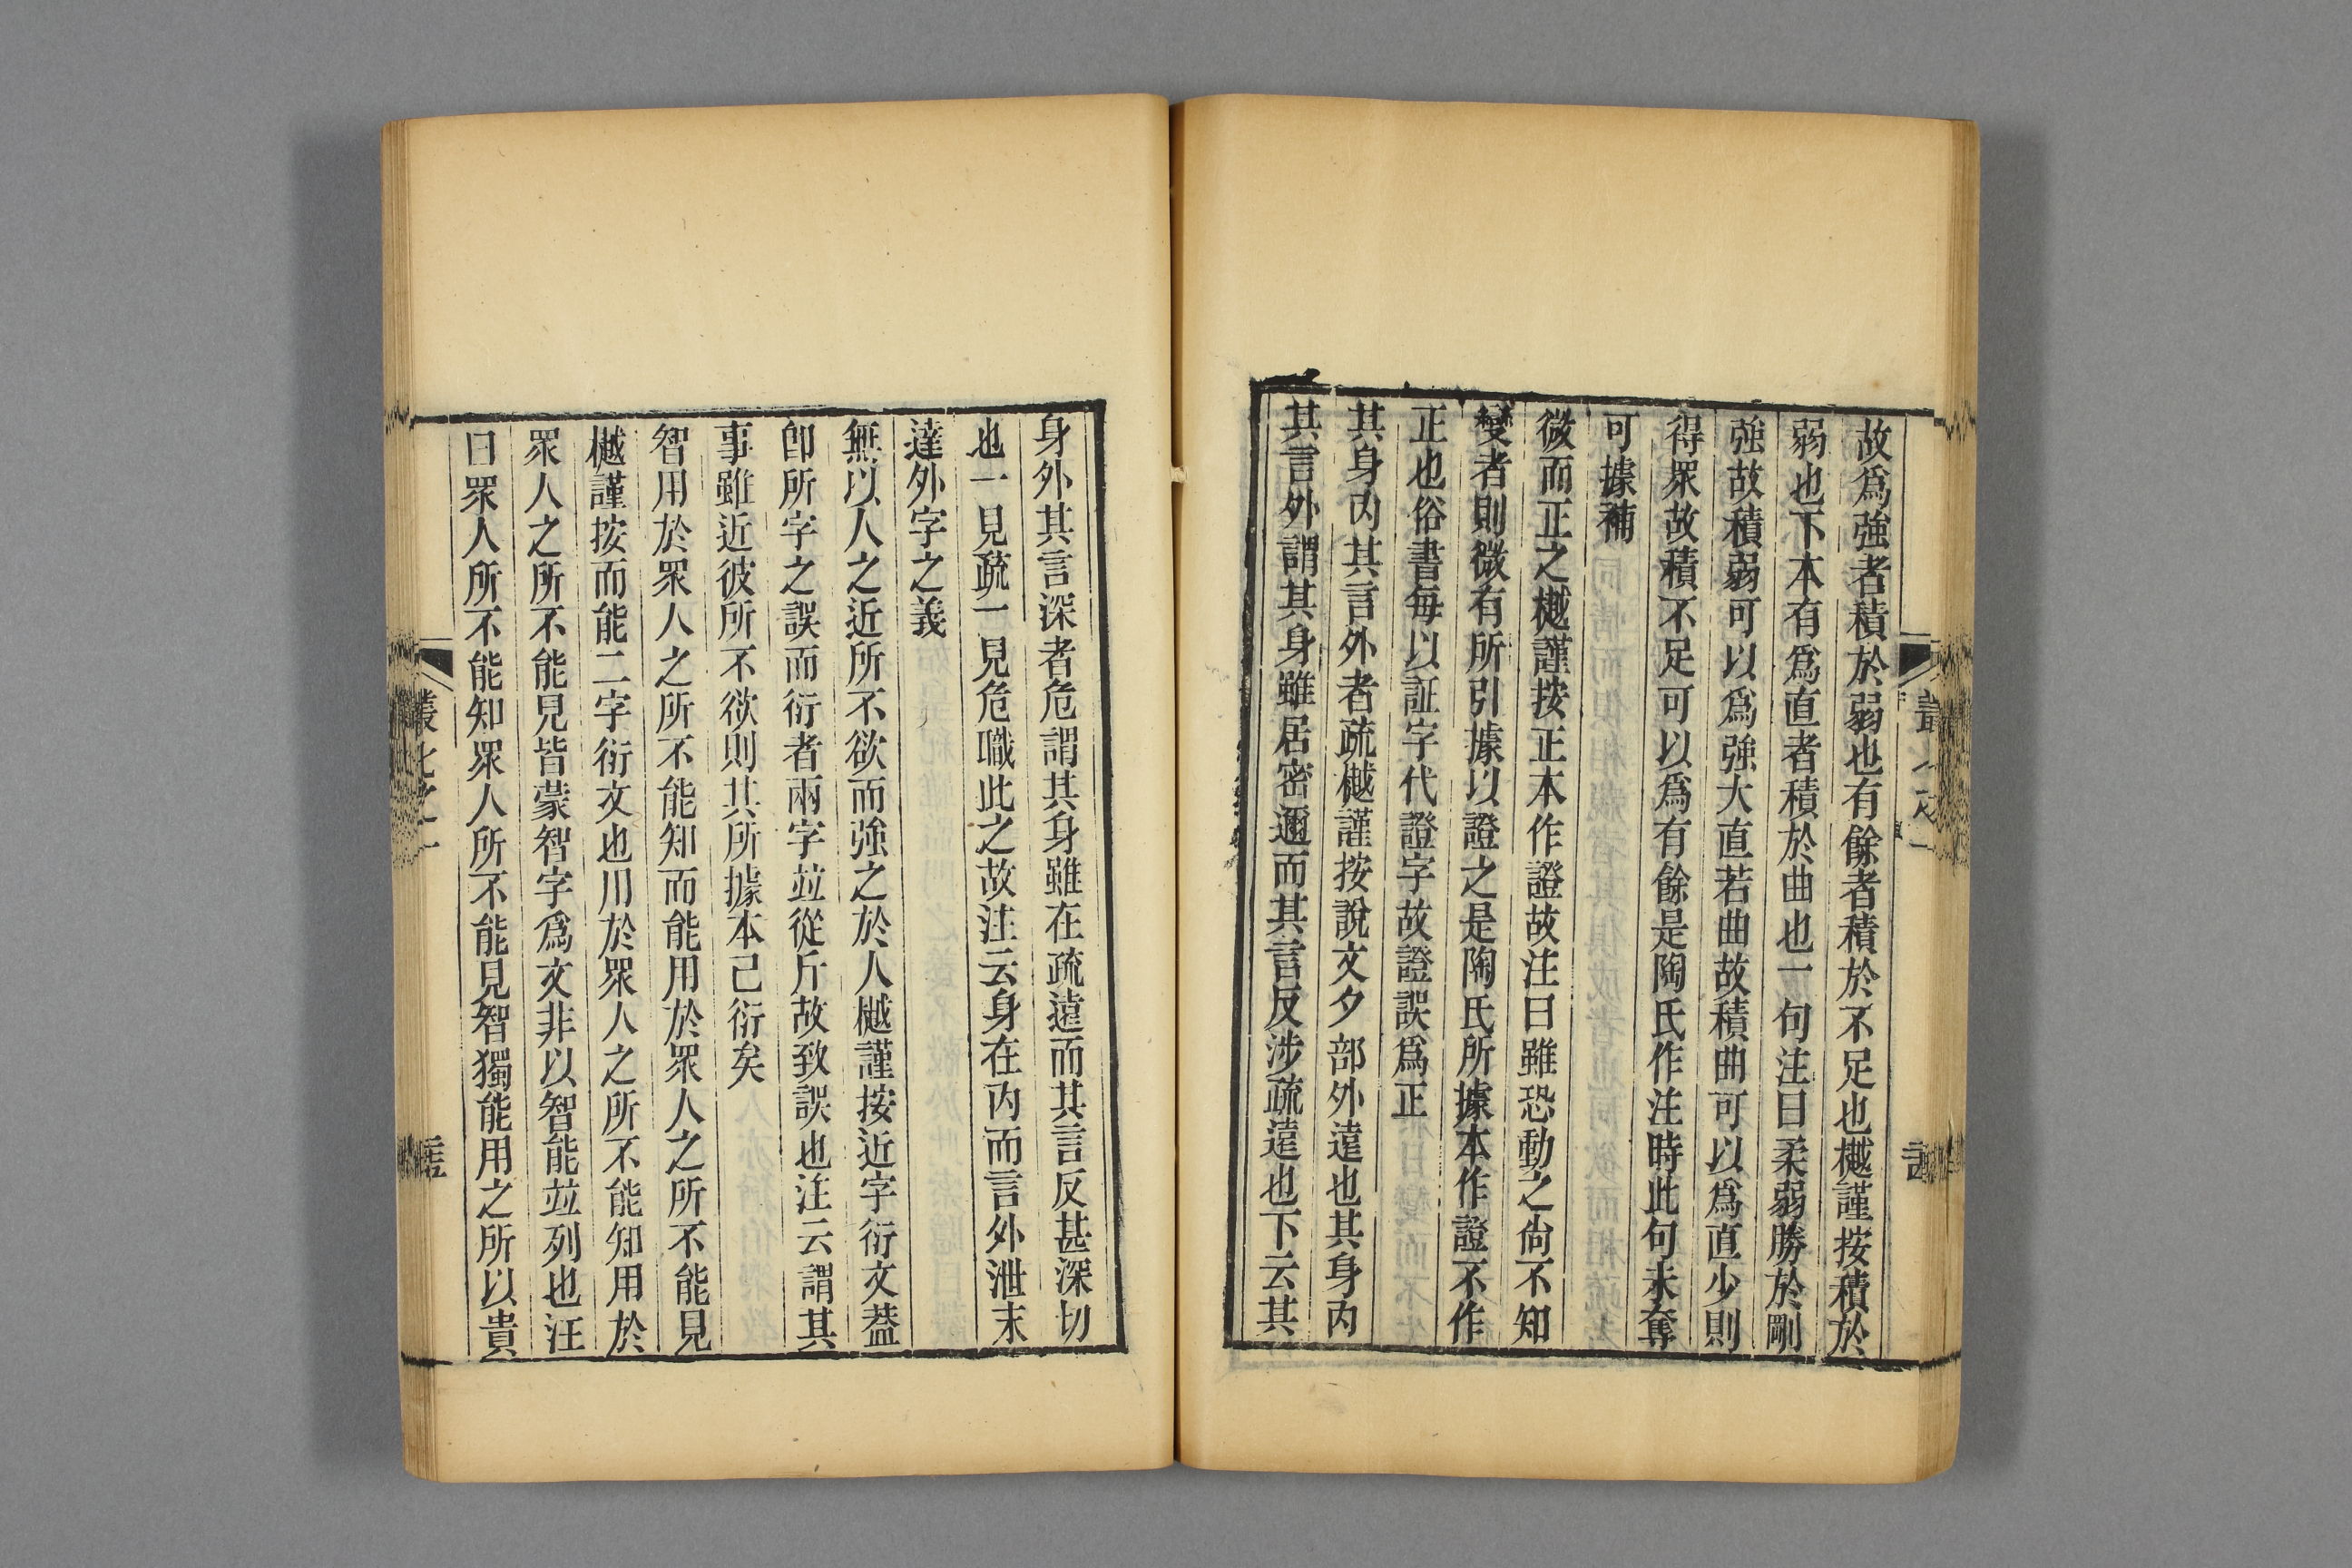 故爲強者積於弱也有餘者積於不足也樾謹按積於
弱也下本有爲直者積於曲也一句注曰柔弱勝於剛
強故積弱可以爲強大直若曲故積曲可以爲直少則
得眾故積不足可以爲有餘是陶氏作注時此句未奪
可據補
微而正之樾謹按正本作證故注曰雖恐動之尙不知
變者則微有所引據以證之是陶氏所據本作證不作
正也俗書每以証字代證字故證誤爲正
其身內其言外者疏樾謹按說文夕部外遠也其身內
其言外謂其身雖居密邇而其言反涉疏遠也下云其
身外其言深者危謂其身雖在疏遠而其言反甚深切
也一見疏一見危職此之故注云身在內而言外泄末
達外字之義
無以人之近所不欲而強之於人樾謹按近字衍文葢
卽所字之誤而衍者兩字竝從斤故致誤也注云謂其
事雖近彼所不欲則其所據本己衍矣
智用於眾人之所不能知而能用於眾人之所不能見
樾謹按而能二字衍文也用於眾人之所不能知用於
眾人之所不能見皆蒙智字爲文非以智能竝列也注
曰眾人所不能知眾人所不能見智獨能用之所以貴